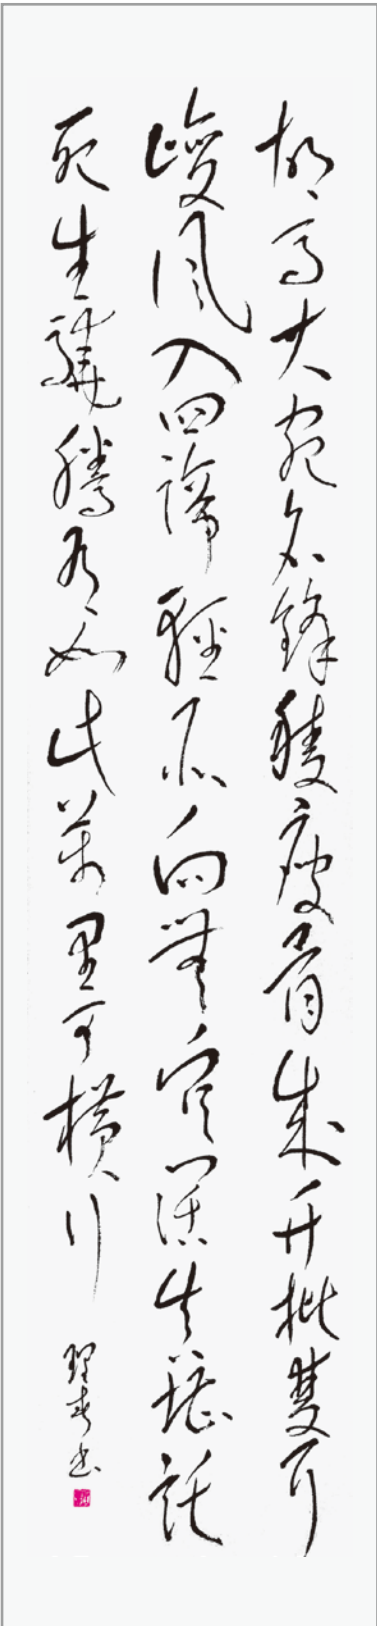 胡馬大宛名鋒稜瘦骨成竹批雙耳
峻風入四蹄輕所向無空闊真堪託
死生驍騰有如此萬里可橫行